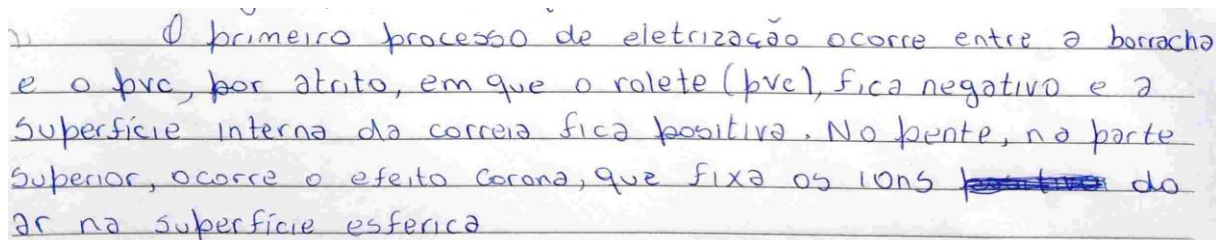 O primeiro processo de eletrização ocorre entre a borracha
e o pvc, por atrito, em que o rolete (pvc), fica negativo e a
superfície interna da correia fica positiva. No pente, na parte
superior, ocorre o efeito corona, que fixa os ions do
ar na superfície esferica